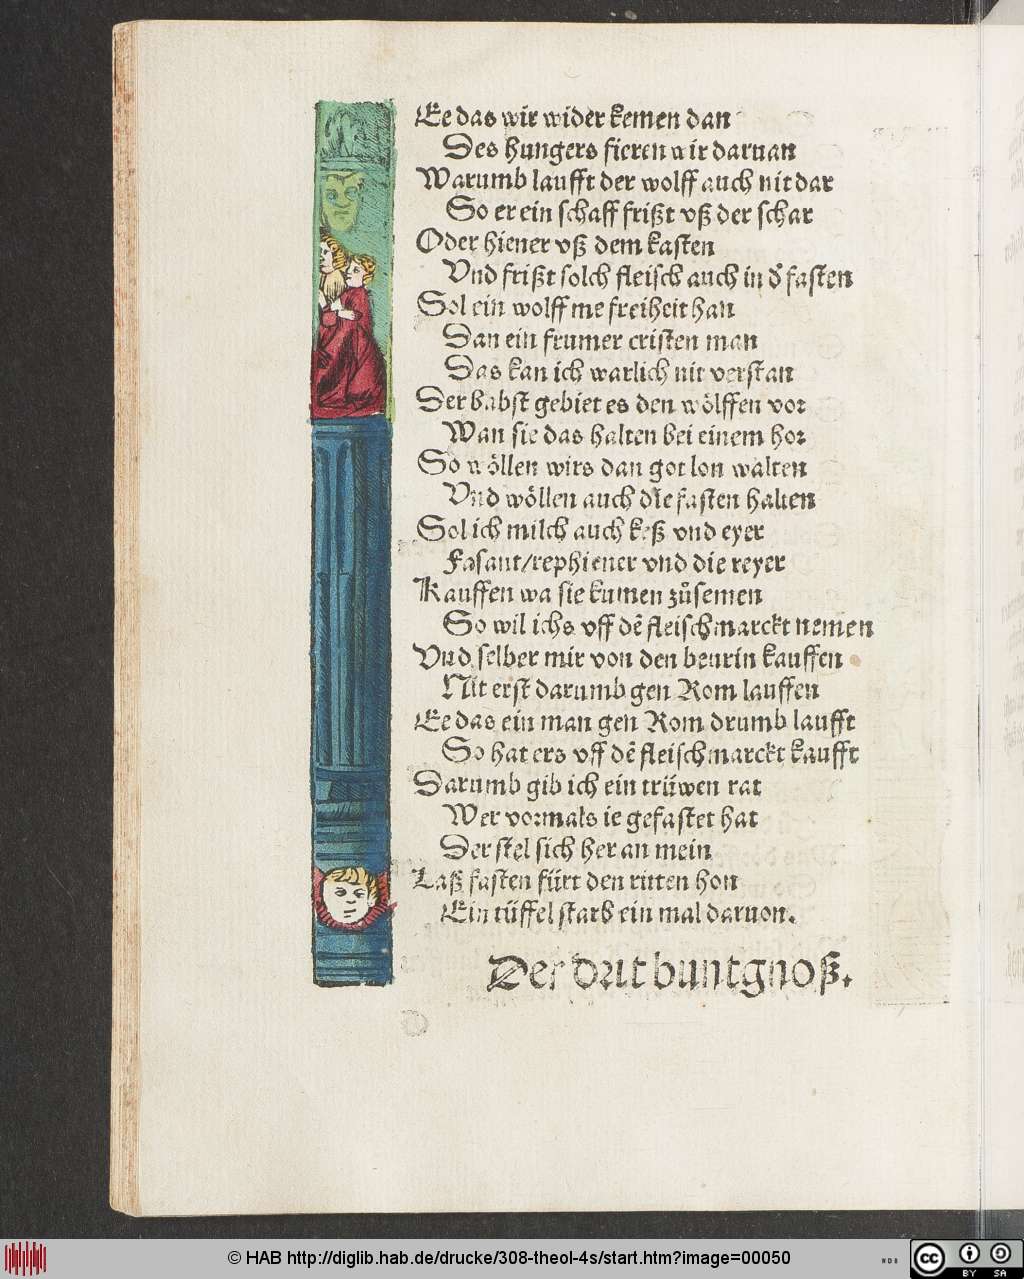 Ee das wir wider kemen dan
Des hungers sieren wir daruan
Warumb laufft der wolff auch nit dar
So er ein schaff frißt vß der schar
Oder hiener vß dem kasten
Vnd frißt solch fleisch auch in d̕ fasten
Sol ein wolff me freiheit han
Dan ein frumer cristen man
Das kan ich warlich nit verstan
Der babst gebiet es den wölffen vor
Wan sie das halten bei einem hor
So wöllen wirs dan got lon walten
Vnd wöllen auch die fasten halten
Sol ich milch auch keß vnd eyer
Fasant/rephiener vnd die reyer
Kauffen wa sie kumen zůsemen
So wil ichs vff dē fleischmarckt nemen
Vnd selber mir von den beurin kauffen
Nit erst darumb gen Rom lauffen
Ee das ein man gen Rom drumb laufft
So hat ers vff dē fleischmarckt kaufft
Darumb gib ich ein trüwen rat
Wer vormals ie gefastet hat
Der stel sich her an mein
Laß fasten fürt den ritten hon
Ein tüffel starb ein mal daruon.
Der drit buntgnoß.
© HAB http://diglib.hab.de/drucke/308-theol-4s/start.htm?image=00050
WDB
cc BY SA